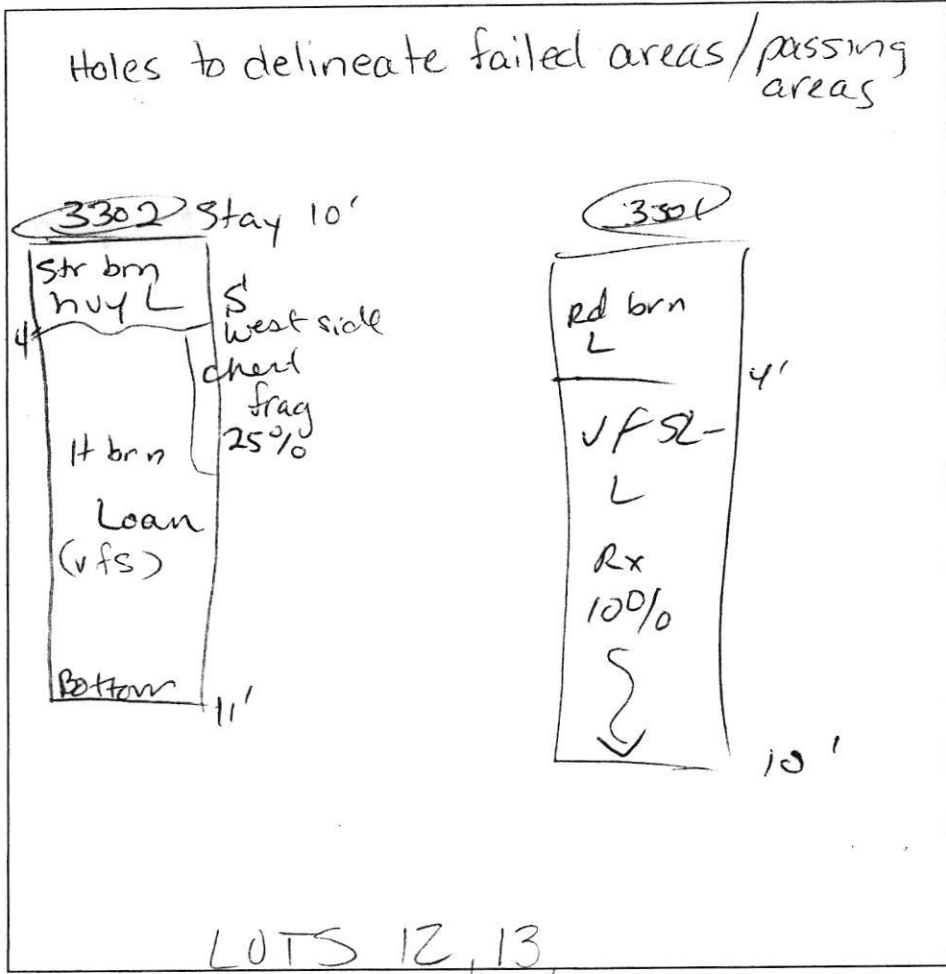 Holes to delineate failed areas/passing
areas
3302 Stay 10'
Str brn
hvy L
4'
S
West side
chert
frag
25%
lt brn
Loam
(vfs)
Bottom
11'
3301
Rd brn
L
4'
vfSL-
L
Rx
10%
10'
LOTS 12, 13